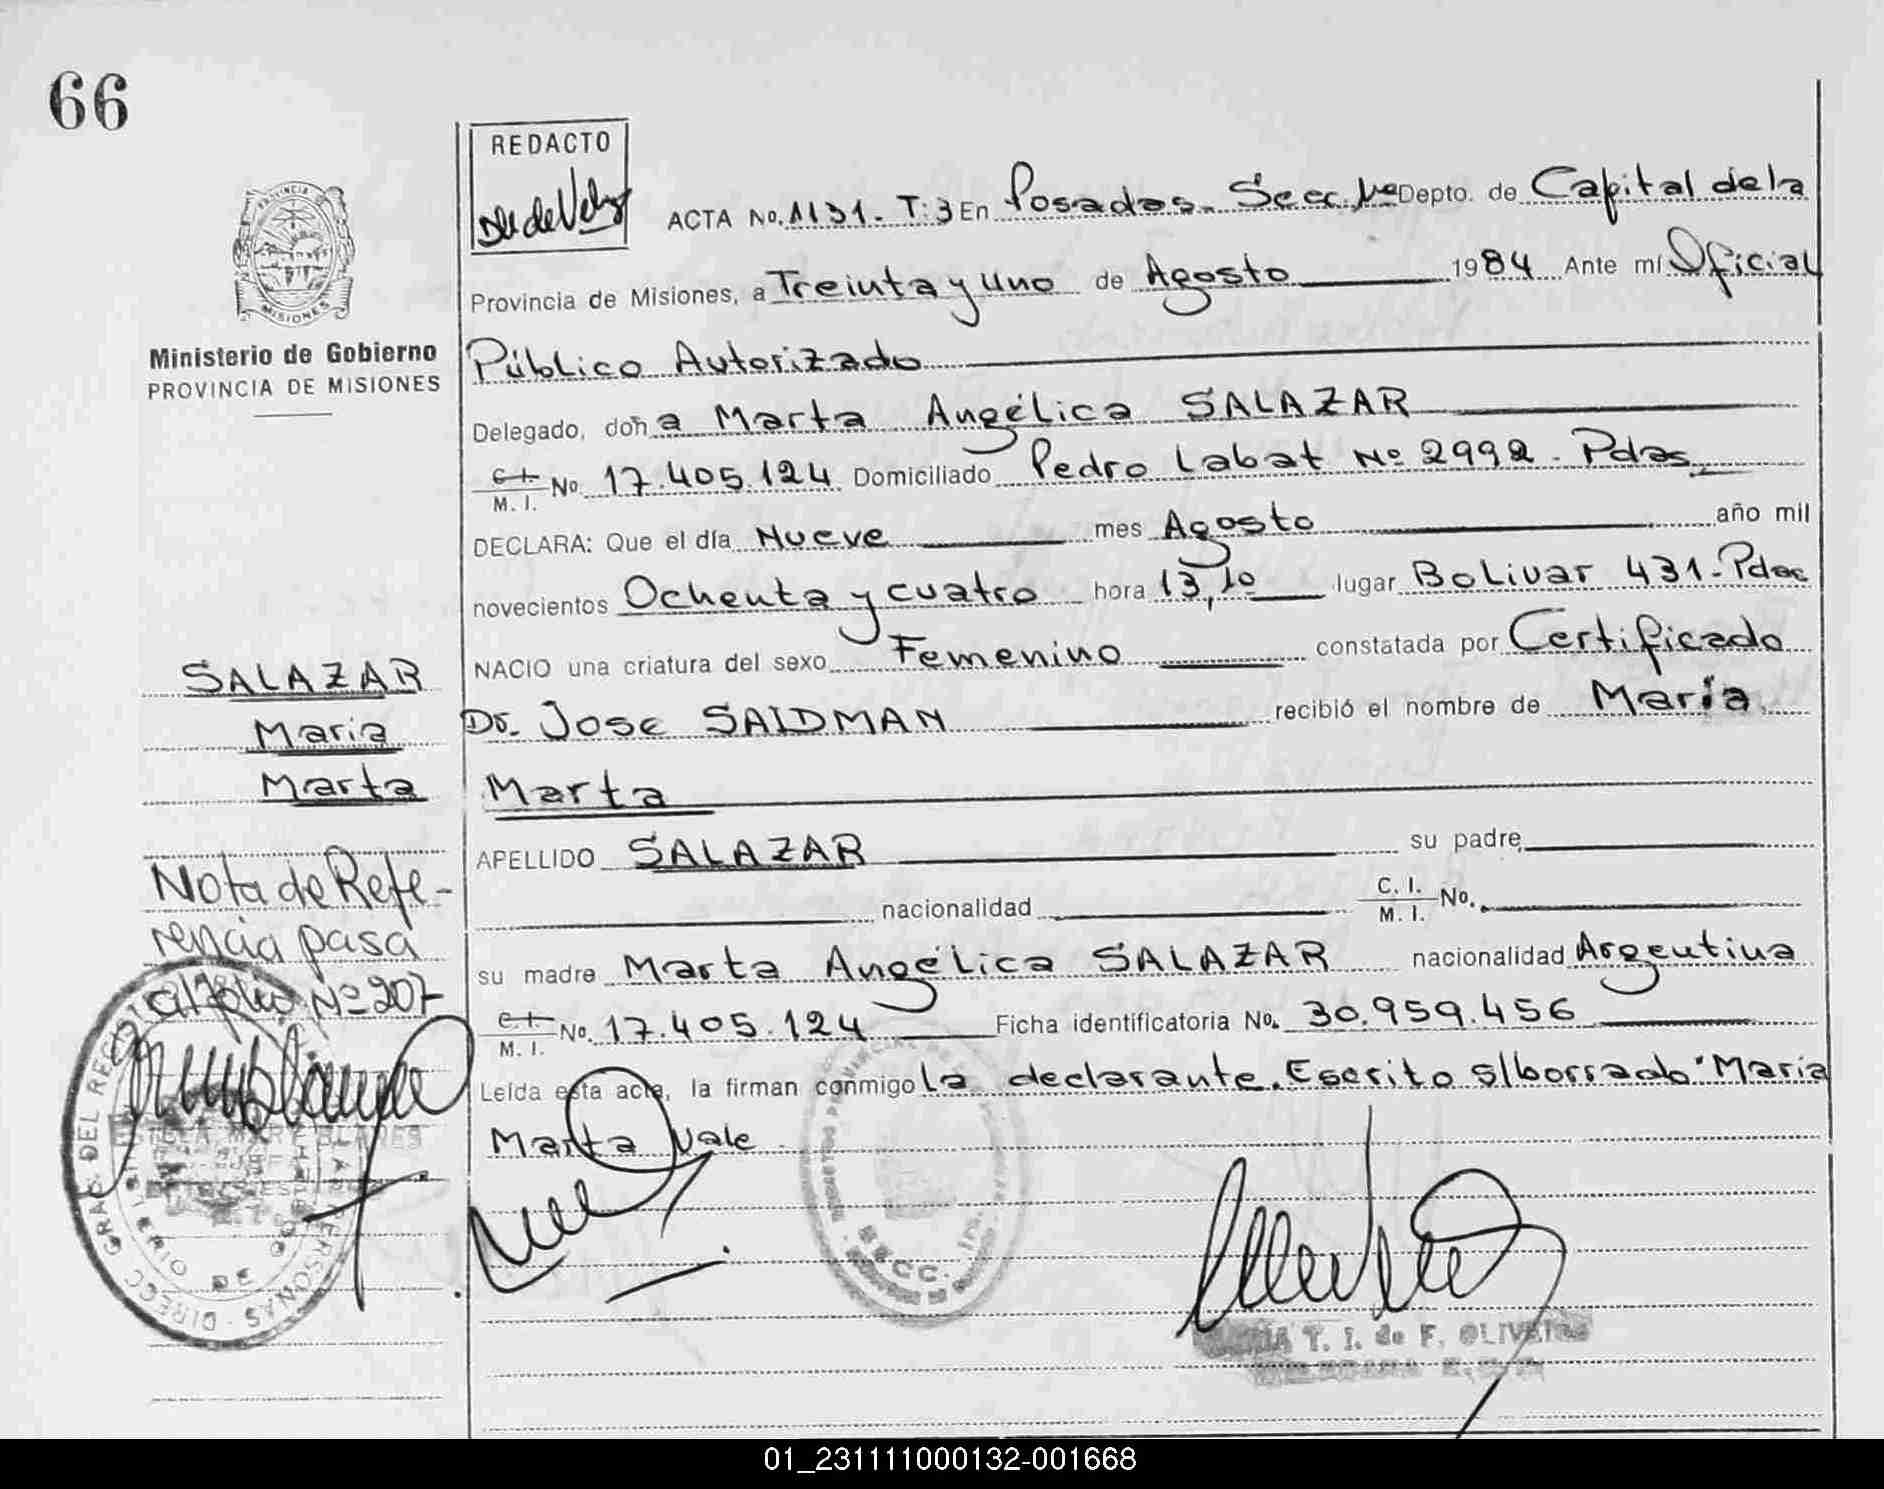 66
REDACTO
ACTA No. 1131. T: 3 En Posadas. Secc. 1ª Depto. de Capital de la
Provincia de Misiones, a Treinta y Uno de Agosto 1984 Ante mí Oficial
PROVINCIA
MISIONES
Ministerio de Gobierno
PROVINCIA DE MISIONES
Público Autorizado
Delegado, doña Marta Angélica SALAZAR
C. I. M. I. No. 17.405.124 Domiciliado Pedro Labat Nº 2992. Pdas
DECLARA: Que el día Nueve mes Agosto año mil
novecientos Ochenta y cuatro hora 13,10 lugar Bolivar 431-Pdas
NACIO una criatura del sexo Femenino constatada por Certificado
Dr. Jose SAIDMAN recibió el nombre de María
Marta
SALAZAR
Maria
Marta
APELLIDO SALAZAR su padre
nacionalidad C. I. M. I. No.
su madre Marta Angélica SALAZAR nacionalidad Argentina
C. I. M. I. No. 17.405.124 Ficha identificatoria No. 30.959.456
Leída esta acta, la firman conmigo La declarante. Escrito s/borrado "Maria
Marta Vale
Nota de Refe-
rencia pasa
al folio Nº 207
DIRECC. GRAL. DEL REGISTRO PERSONAS
MINISTERIO DE GO
T. I. de F. OLIVEIRA
01_231111000132-001668